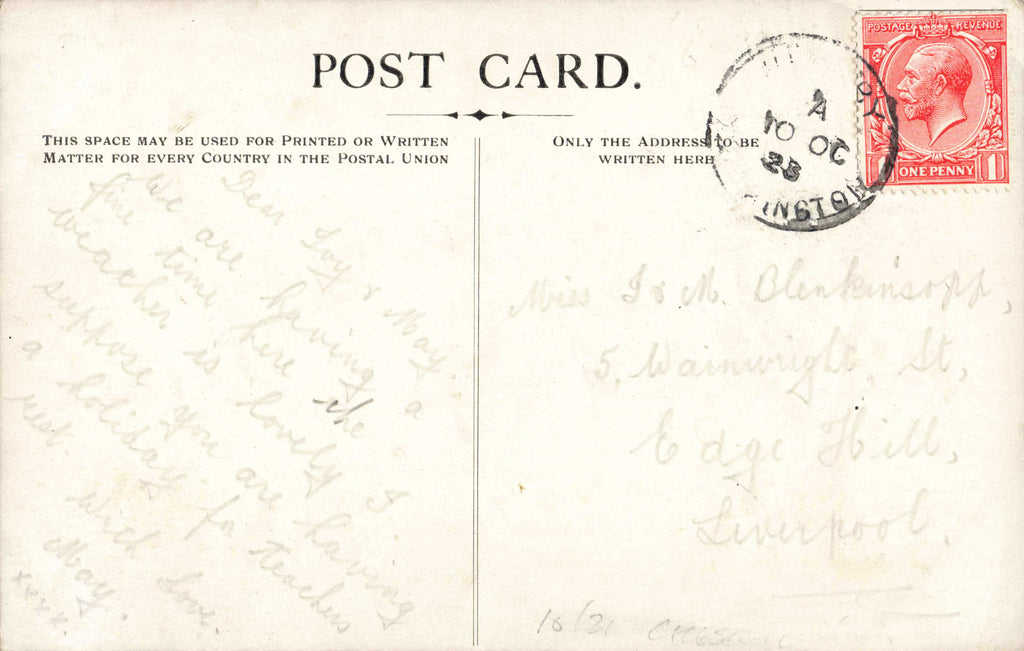 POST CARD.
THIS SPACE MAY BE USED FOR PRINTED OR WRITTEN
MATTER FOR EVERY COUNTRY IN THE POSTAL UNION
ONLY THE ADDRESS TO BE
WRITTEN HERE
POSTAGE REVENUE
1 ONE PENNY 1
A
10 OC
23
Dear Ivy & May.
We are having a
fine time here the
weather is lovely I
suppose you are having
a holiday for teachers
rest with Love.
May.
xxxx.
Miss I & M. Blenkinsopp,
5, Wainwright St,
Edge Hill,
Liverpool.
10/21